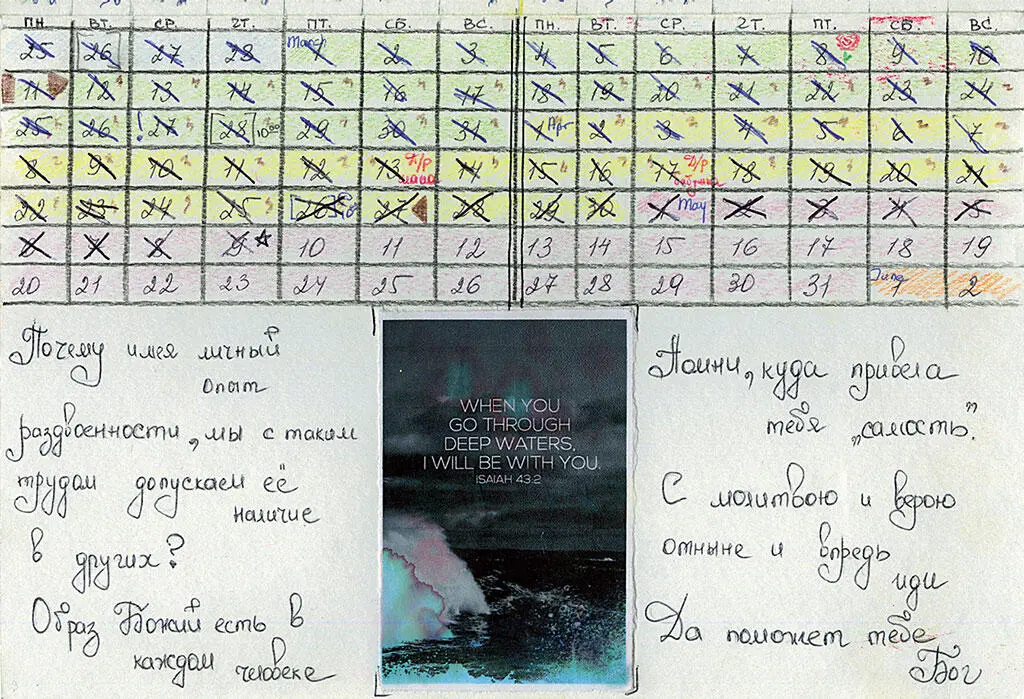 ПН. ВТ. СР. ЧТ. ПТ. СБ. ВС. ПН. ВТ. СР. ЧТ. ПТ. СБ. ВС.
25 26 27 28 March 1 2 3 4 5 6 7 8 9 10
11 12 13 14 15 16 17 18 19 20 21 22 23 24
25 26 ! 27 28 10:00 29 30 31 1 Apr 2 3 4 5 6 7
8 9 10 11 12 13 Д/р 14 15 16 17 Д/р 18 19 20 21
22 23 24 25 26 27 28 29 30 1 May 2 3 4 5
6 7 8 9 10 11 12 13 14 15 16 17 18 19
20 21 22 23 24 25 26 27 28 29 30 31 June 1 2
Почему имея личный
опыт
раздвоенности, мы с таким
трудом допускаем её
наличие
в других?
Образ Божий есть в
каждом человеке
WHEN YOU
GO THROUGH
DEEP WATERS,
I WILL BE WITH YOU.
ISAIAH 43:2
Помни, куда привела
тебя „самость”.
С молитвою и верою
отныне и впредь
иди
Да поможет тебе
Бог